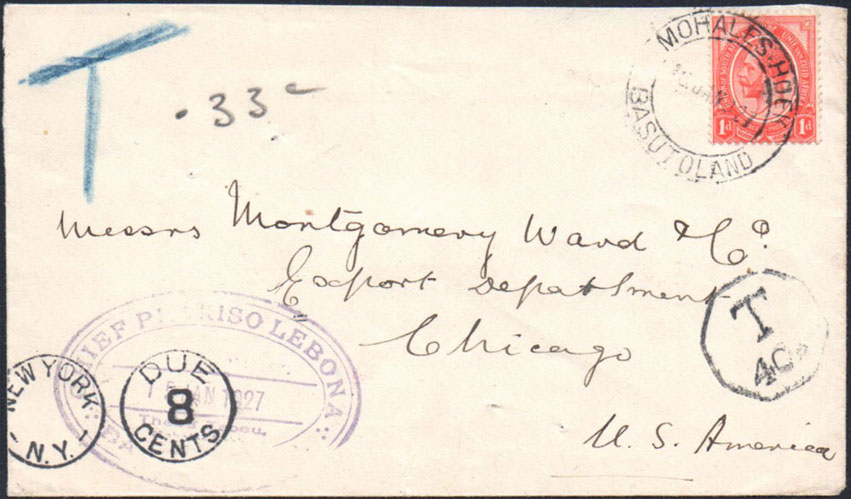 T
.33c
MOHALES-HOEK
BASUTOLAND
1d 1d
Messrs Montgomery Ward & Co.
Export Department
Chicago
U.S. America
T
40
CHIEF LEBONA
15 JAN 1927
NEW YORK
N.Y. 1
DUE
8
CENTS